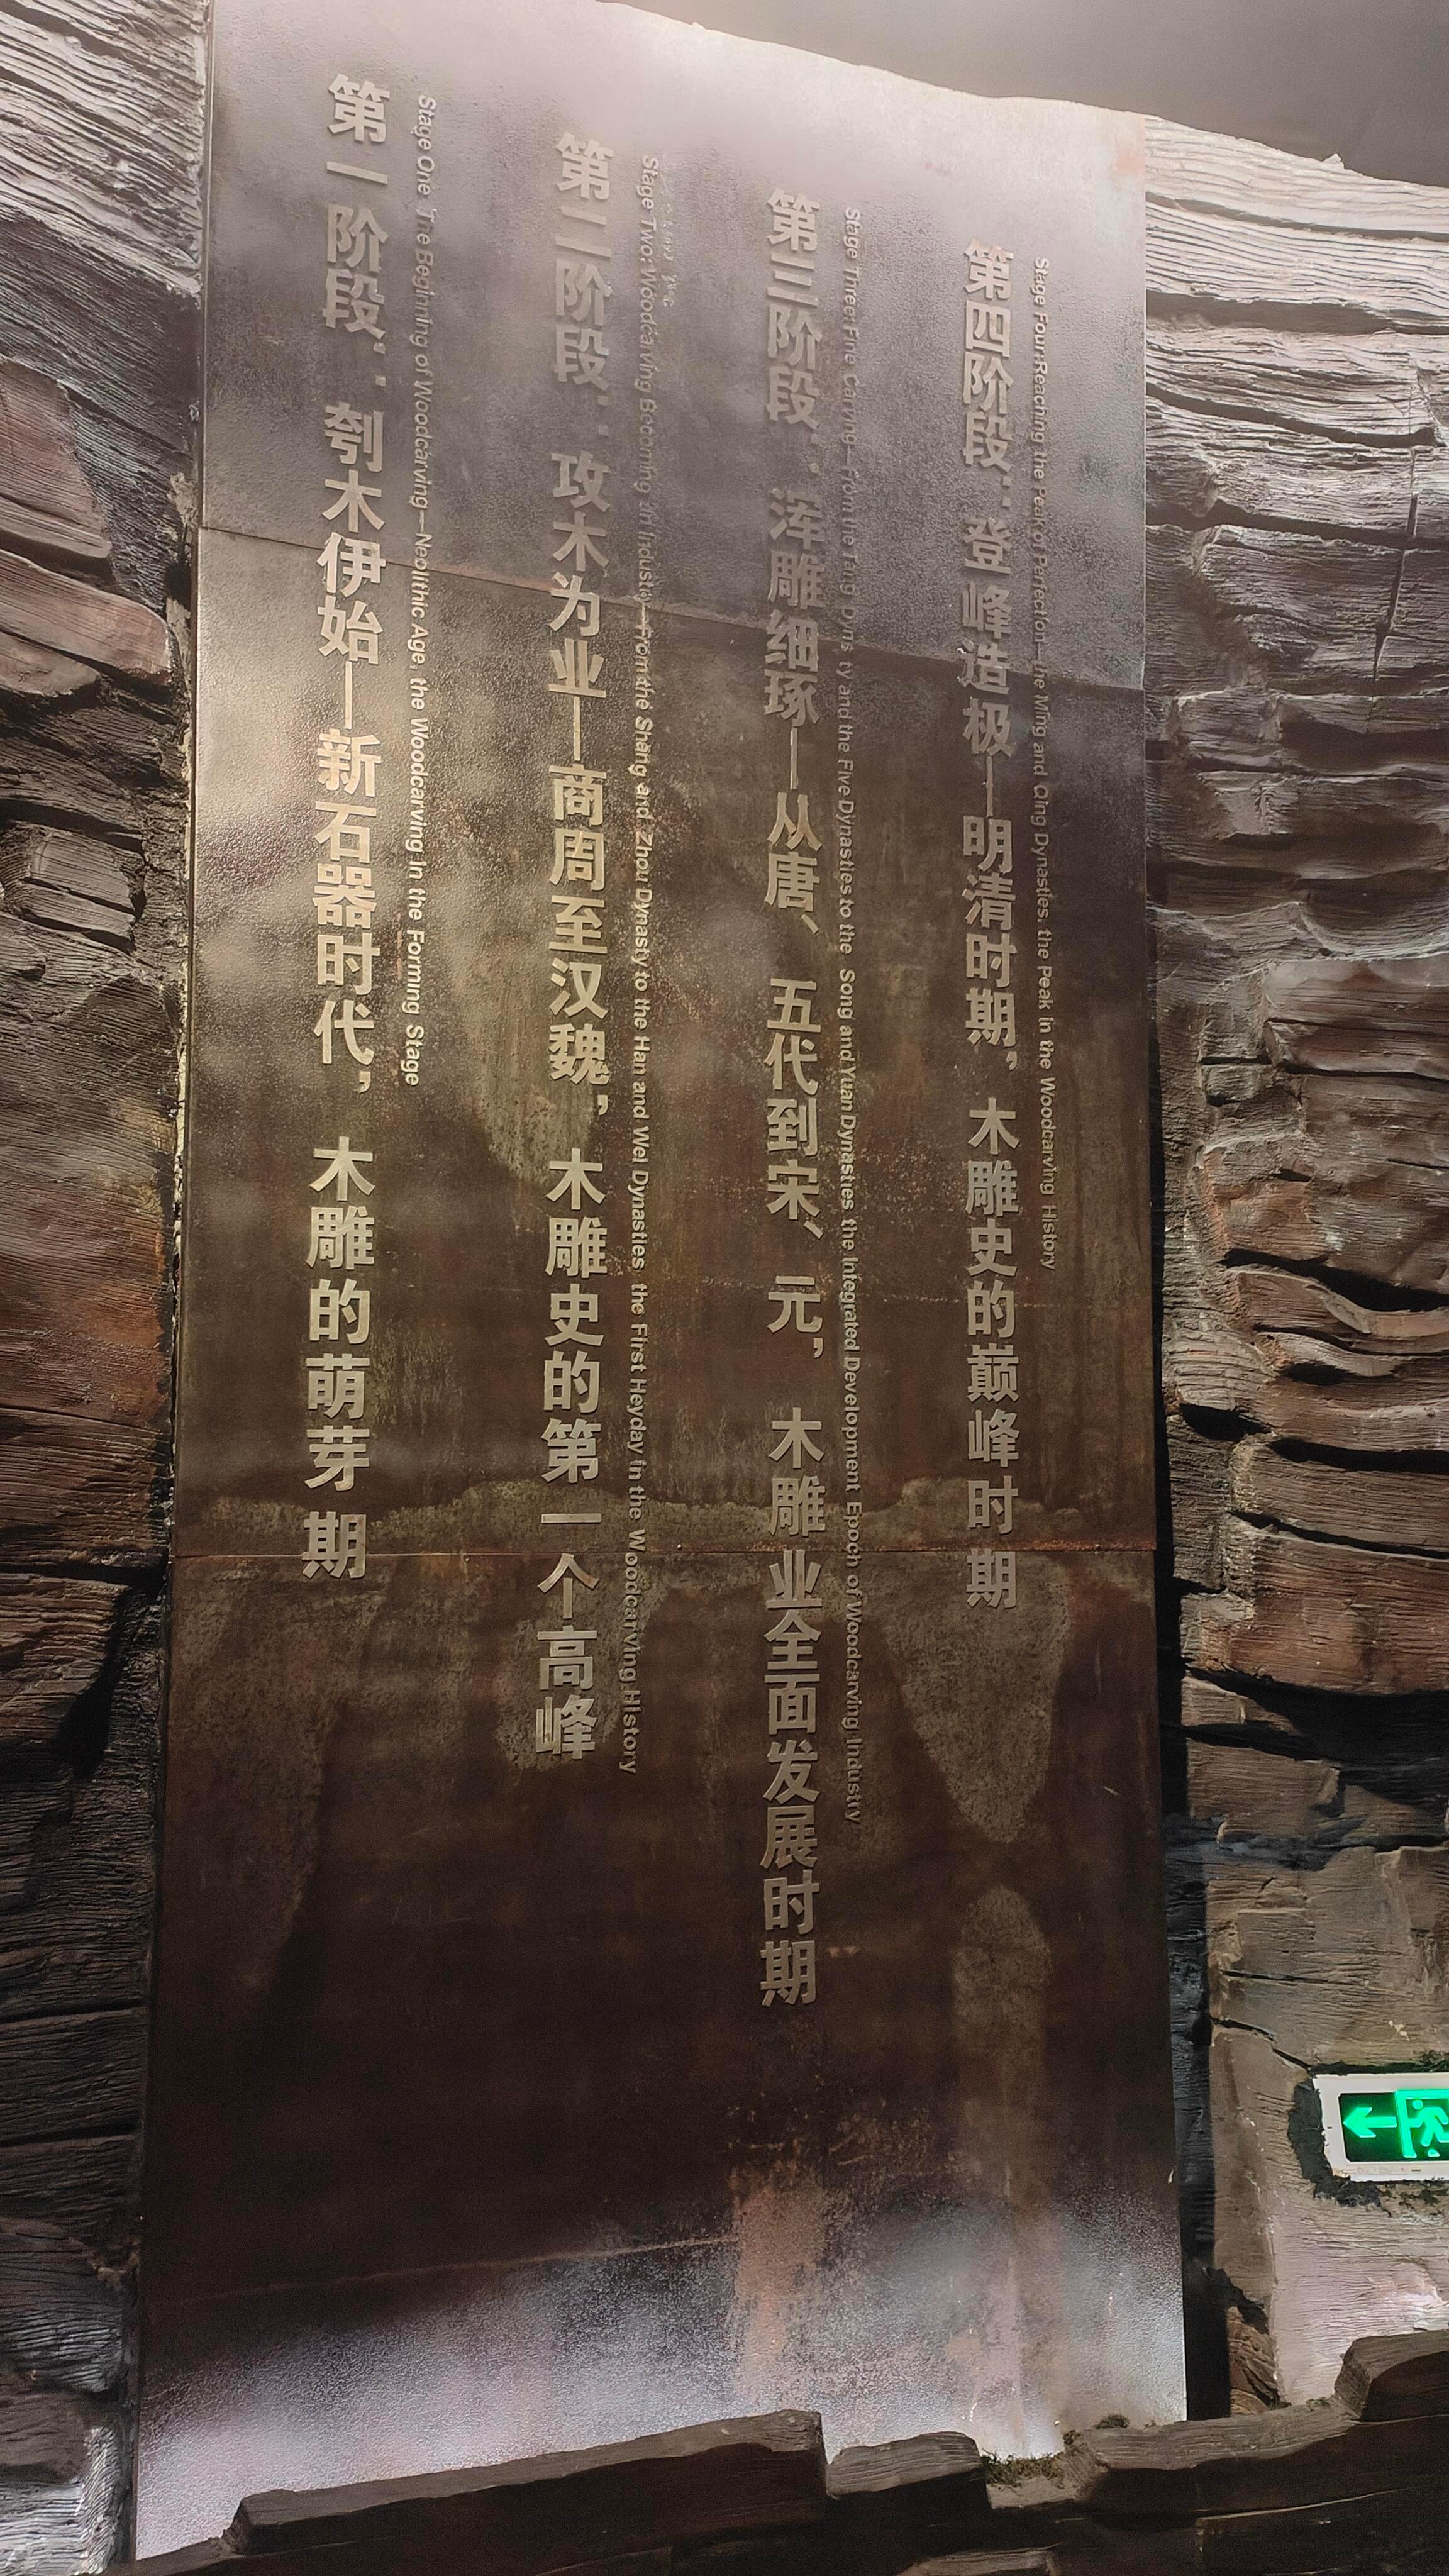 第一阶段：刳木伊始—新石器时代，木雕的萌芽期
Stage One: The Beginning of Woodcarving—Neolithic Age, the Woodcarving in the Forming Stage
第二阶段：攻木为业—商周至汉魏，木雕史的第一个高峰
Stage Two: Woodcarving Becoming an Industry—From the Shang and Zhou Dynasty to the Han and Wei Dynasties, the First Heyday in the Woodcarving History
第三阶段：浑雕细琢—从唐、五代到宋、元，木雕业全面发展时期
Stage Three: Fine Carving—From the Tang Dynasty and the Five Dynasties to the Song and Yuan Dynasties, the Integrated Development Epoch of Woodcarving Industry
第四阶段：登峰造极—明清时期，木雕史的巅峰时期
Stage Four: Reaching the Peak of Perfection—the Ming and Qing Dynasties, the Peak in the Woodcarving History